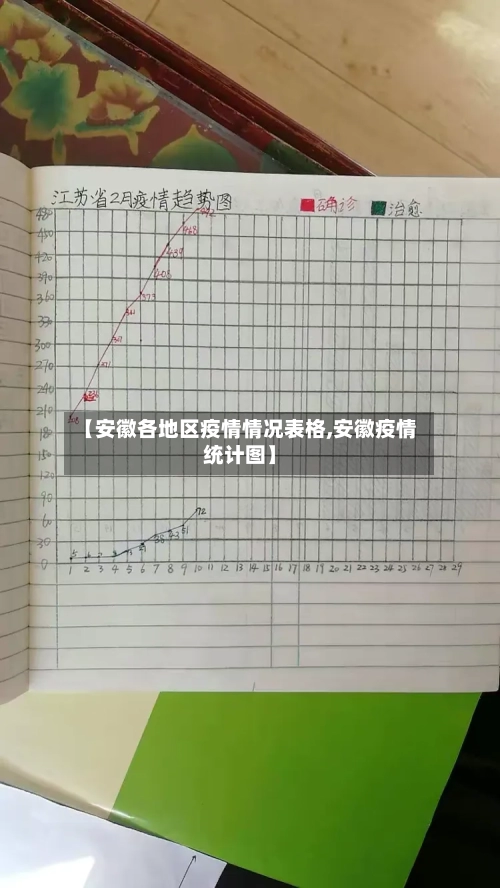 江苏省2月疫情趋势图
确诊 治愈
480 492
450 468
420 439
390 408
360 373
330 341
300 307
270 271
240
210
180
【安徽各地区疫情情况表格,安徽疫情
统计图】
120
90
60 72
30
0
1 2 3 4 5 6 7 8 9 10 11 12 13 14 15 16 17 18 19 20 21 22 23 24 25 26 27 28 29